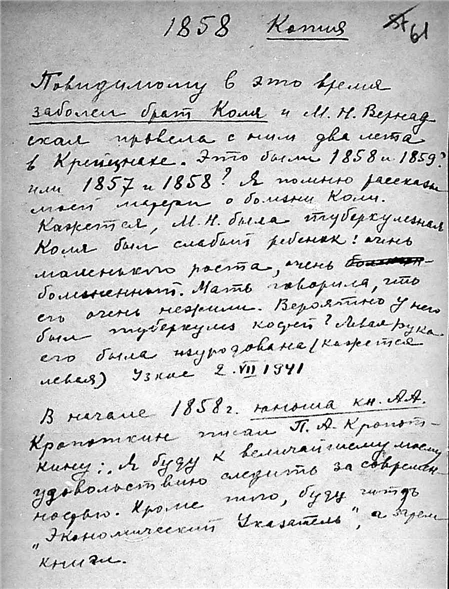 1858 Копия
61
Повидимому в это время
заболел брат Коля и М. Н. Вернад
ская провела с ним два лета
в Крейцнахе. Это были 1858 и 1859?
или 1857 и 1858? Я помню рассказы
моей матери о болезни Коли.
Кажется, М. Н. была туберкулезная
Коля был слабый ребенок: очень
маленького роста, очень
болезненный. Мать говорила, что
его очень нежили. Вероятно у него
был туберкулез костей? Левая рука
его была изуродована (кажется
левая) Узкое 2.VII 1941
В начале 1858 г. юноша кн. А.А.
Кропоткин писал П. А. Кропот-
кину: „Я буду к величайшему моему
удовольствию следить за современ-
ностью. Кроме того, буду читать
"Экономический Указатель", а
книги.